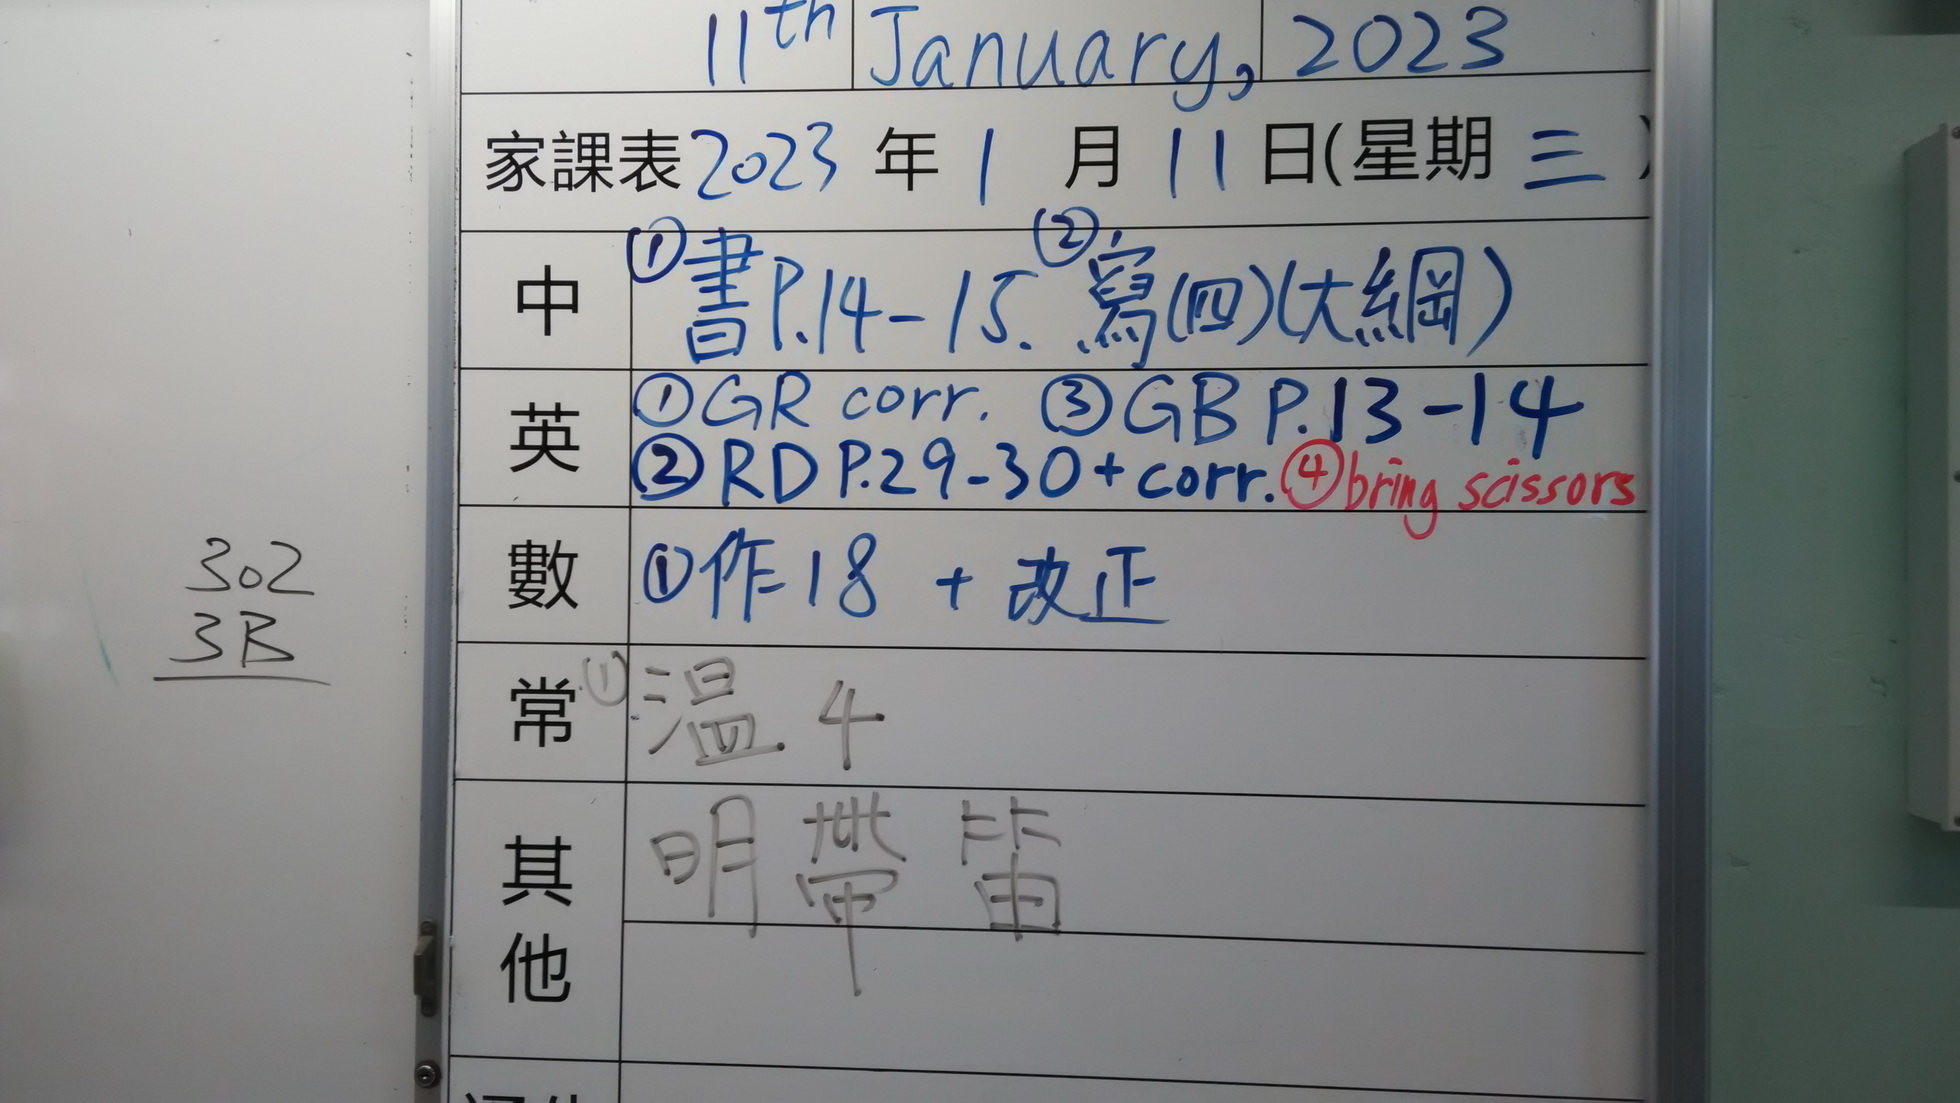 11th January, 2023
家課表 2023 年 1 月 11 日(星期 三 )
中 ①書P.14-15. ②寫(四)(大綱)
英 ①GR corr. ③GB P.13-14
②RD P.29-30+corr. ④bring scissors
數 ①作18 + 改正
常 ①溫.4
其他 明帶笛
302
3B